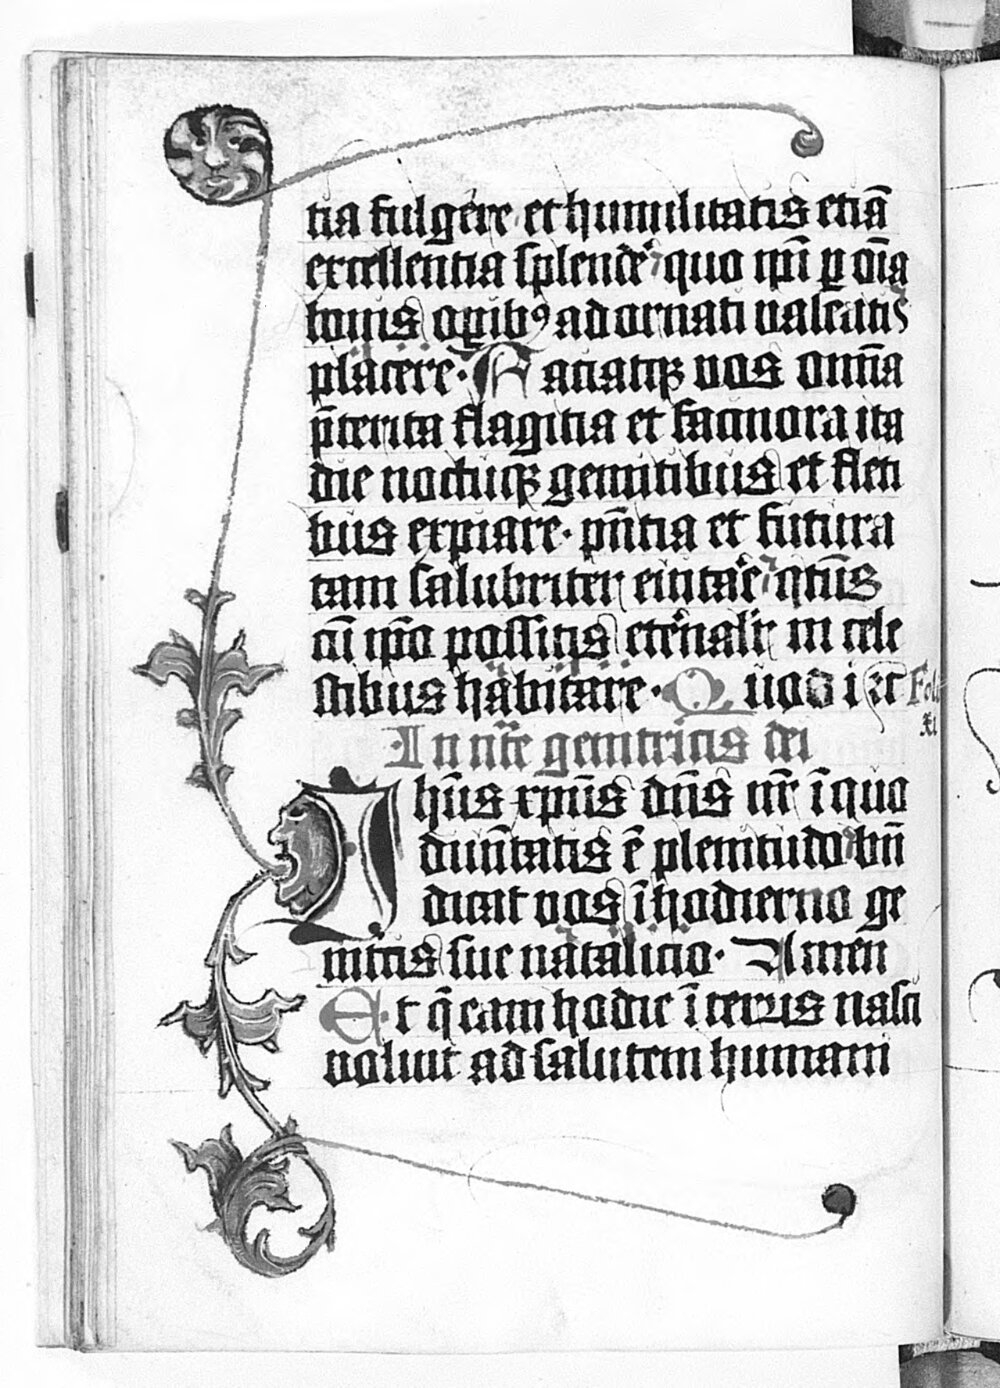 tia fulgere et humilitatis etiā
excellentia splendē quo ip̄i ꝑ oīa
bonis oꝑibꝰ adornati valeatis
placere. Faciatqꝫ vos omīa
p̄terita flagitia et facinora ita
die noctuqꝫ gemitibus et fleti
bus expiare. pn̄tia et futura
tam salubriter euitare qtin̄s
cū ip̄o possitis et̄nalit̄ in cele
stibus habitare. Quod ip̄e Folio
xi
In nr̄e genitricis dei
Ihūs xp̄us dn̄s nr̄ ī quo
diuīitatis ē plenitudo bn̄
dicat vos ī hodierno ge
nitricis sue natalicio. Amen
Et q̄ eam hodie ī terris nasci
voluit ad salutem humani